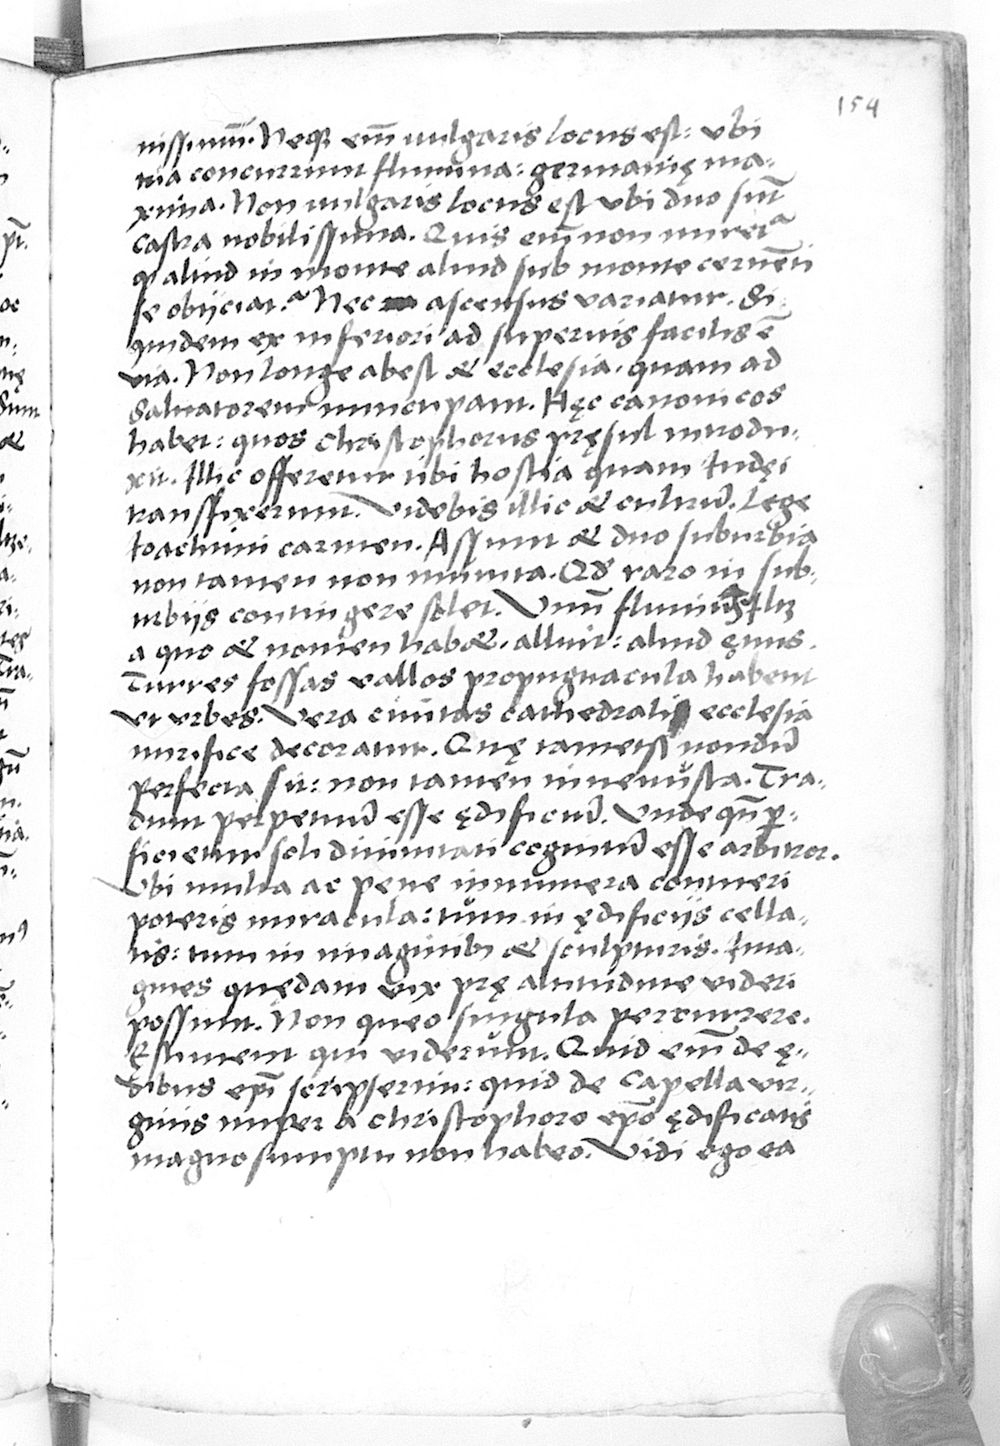 154
nissimū. Neqꝫ eī vulgaris locus est: vbi
tria concurrunt flumina: germanię ma-
xima. Non vulgaris locus est vbi duo sūt
castra nobilissima. Quis eī non miret᷑
qꝫ aliud in monte aliud sub monte cernēti
se obijciat? Nec ascensus variatur. Si-
quidem ex inferiori ad superius facilis ē
via. Non longe abest & ecclesia. quam ad
Saluatorem nuncupant. Hęc canonicos
habet: quos Christophorus pręsul introdu-
xit. Illic offeretur tibi hostia quam Iudęi
transfixerunt. Videbis illic & cultrū. Lege
Ioachimi carmen. Assunt & duo suburbia
non tamen non munita. Qd̄ raro in sub-
urbijs contingere solet. Vnū fluuius Iltz
a quo & nomen habet. alluit: aliud ęnus.
Turres fossas vallos propugnacula habent
vt vrbes. Vera ciuitas cathedrali ecclesia
mirifice decoratur. Quę tametsi nondū
perfecta sit: non tamen inuenusta. Tra-
dunt perpetuū esse ędificiū. Vnde qn̄ ꝑ-
ficietur soli diuinitati cognitū esse arbitror.
Vbi multa ac pene innumera contueri
poteris miracula: tum in ędificijs cella-
tis: tum in imaginibꝫ & sculpturis. Ima-
gines quędam vix prę altitudine videri
possunt. Non queo singula percurrere.
Ęstiment qui viderunt. Quid eī de ę-
dibus epī scripserim: quid de Capella vir-
ginis nuper a Christophoro epo ędificatis
magno sumptu non habeo. Vidi ego ea